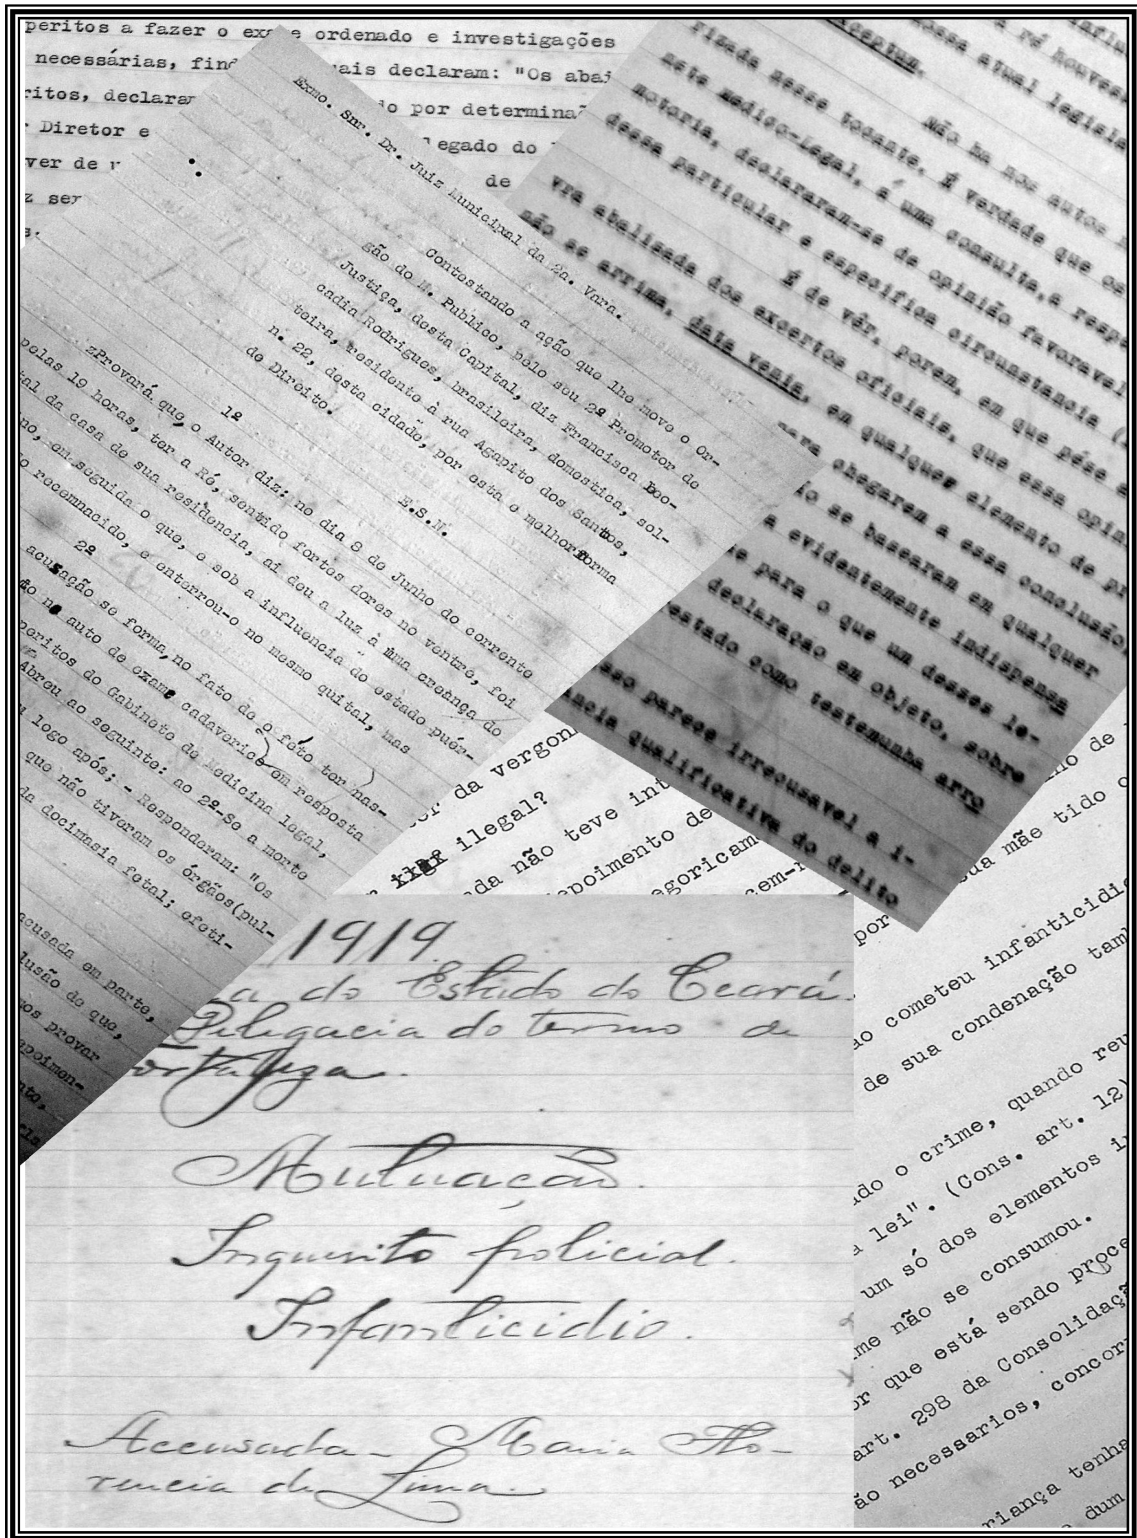 peritos a fazer o exa e ordenado e investigações
necessárias, find uais declaram: "Os abai
ritos, declaram o por determina
Diretor e legado do
ver de de
z ser
s.
Exmo. Snr. Dr. Juiz Municipal da 2a. Vara.
Contestando a ação que lhe move o Or-
gão do M. Publico, pelo seu 2º Promotor de
Justiça, desta Capital, diz Francisca Leo-
cadia Rodrigues, brasileira, domestica, sol-
teira, residente à rua Agapito dos Santos,
n. 22, desta cidade, por esta e melhor forma
de Direito.
E.S.N.
1º
Provará que, o Autor diz: no dia 8 de Junho do corrente
pelas 19 horas, ter a Ré, sentido fortes dores no ventre, foi
tal da casa de sua residencia, aí deu a luz à uma creança do
no, em seguida o que, e sob a influencia do estado puér-
o recemnacido, e enterrou-o no mesmo quital, mas
2º
acusação se forma, no fato de o féto ter nas-
do no auto de exame cadaverico em resposta
peritos do Gabinete de Medicina legal,
Abreu ao seguinte: ao 2º-Se a morte
logo após; - Responderam: "Os
que não tiveram os órgãos(pul-
da docimasia fetal; efeti-
acusada em parte,
lusão de que,
os provar
epoimen-
nto,
influ
a ré houvess
nossa atual legisla
ceptum.
Não ha nos autos
fizada nesse tocante. É verdade que os
nete Médico-Legal, a uma consulta,a respe
motoria, declararam-se de opinião favoravel
dessa particular e especifica circunstancia
É de vêr, porem, em que pése a
vra abalisada dos expertos oficiais, que essa opin
não se arrima, data venia, em qualquer elemento de pr
para chegarem a essa conclusão,
o se basearam em qualquer
a evidentemente indispensa
e para o que um desses le-
declaração em objeto, sobre
estado como testemunha arro
sso parece irrecusavel a i-
ncia qualificativa do delito
er da vergon
ilegal?
da não teve int
epoimento de
egoricam
cem-n
no de
sua mãe tido o
por
ão cometeu infanticidi
de sua condenação tam
ado o crime, quando reu
a lei". (Cons. art. 12)
um só dos elementos i
me não se consumou.
or que está sendo proce
art. 298 da Consolidaçã
ão necessarios, concor
riança tenha
dum
1919.
a do Estado do Ceará.
Delegacia do termo de
Fortaleza.
Autuação.
Inquerito policial.
Infanticidio.
Accusada - Maria Flo-
rencia de Lima.